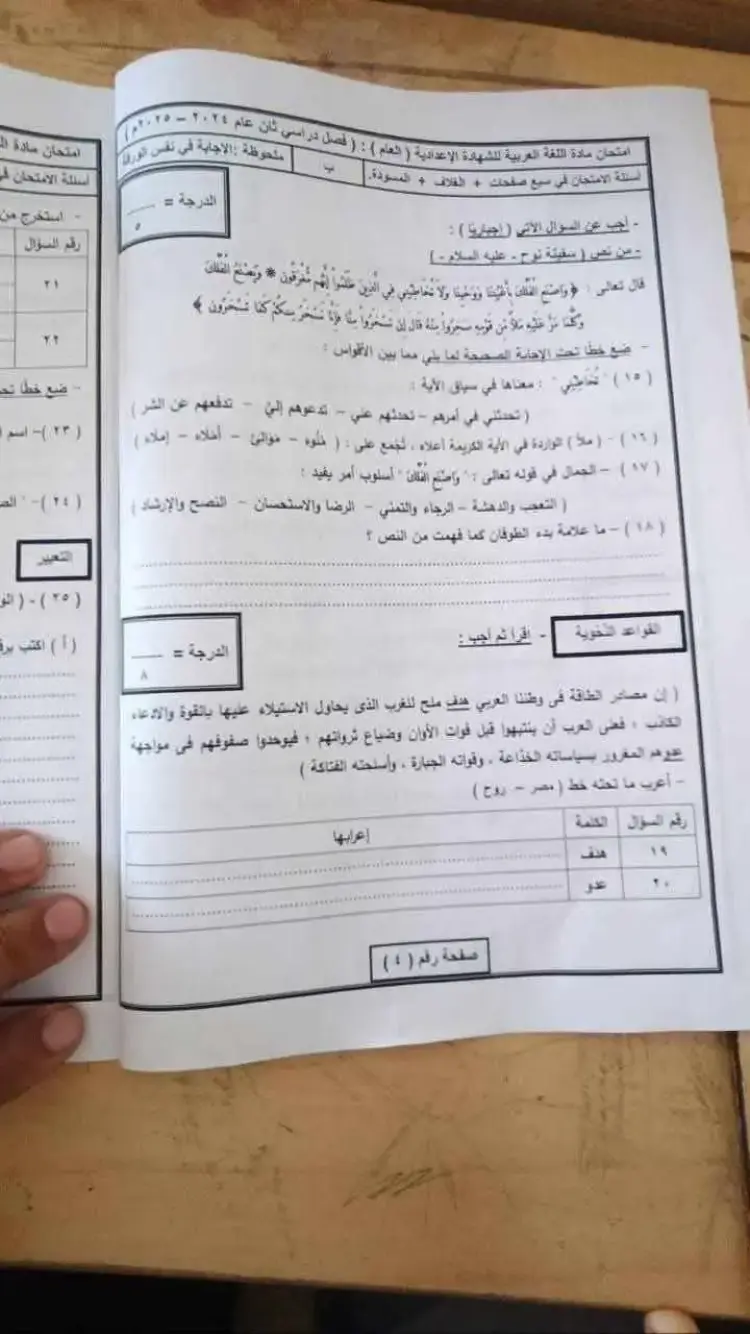 امتحان مادة اللغة العربية للشهادة الإعدادية ( العام ) : ( فصل دراسي ثان عام ٢٠٢٤ – ٢٠٢٥م )
أسئلة الامتحان في سبع صفحات + الغلاف + المسودة.
ب
ملحوظة :الإجابة في نفس الورقة
الدرجة = ____
٥
- أجب عن السؤال الآتي ( إجباريًا ) :
- من نص ( سفينة نوح - عليه السلام - )
قال تعالى : ﴿ وَاصْنَعِ الْفُلْكَ بِأَعْيُنِنَا وَوَحْيِنَا وَلَا تُخَاطِبْنِي فِي الَّذِينَ ظَلَمُوا إِنَّهُم مُّغْرَقُونَ * وَيَصْنَعُ الْفُلْكَ
وَكُلَّمَا مَرَّ عَلَيْهِ مَلَأٌ مِّن قَوْمِهِ سَخِرُوا مِنْهُ قَالَ إِن تَسْخَرُوا مِنَّا فَإِنَّا نَسْخَرُ مِنكُمْ كَمَا تَسْخَرُونَ ﴾
- ضع خطًا تحت الإجابة الصحيحة لما يلي مما بين الأقواس :
( ١٥ ) " تُخَاطِبْنِي " : معناها في سياق الآية :
( تحدثني في أمرهم – تحدثهم عني – تدعوهم إليّ – تدفعهم عن الشر )
( ١٦ ) - ( ملأ ) الواردة في الآية الكريمة أعلاه ، تُجمع على : ( مُلُوء – مَوَالئ – أملاء – إملاء )
( ١٧ ) – الجمال في قوله تعالى : " وَاصْنَعِ الْفُلْكَ " أسلوب أمر يفيد :
( التعجب والدهشة – الرجاء والتمني – الرضا والاستحسان – النصح والإرشاد )
( ١٨ ) – ما علامة بدء الطوفان كما فهمت من النص ؟
القواعد النحوية
- اقرأ ثم أجب :
الدرجة = ____
٨
( إن مصادر الطاقة في وطننا العربي هدف ملح للغرب الذى يحاول الاستيلاء عليها بالقوة والادعاء
الكاذب ، فعلى العرب أن ينتبهوا قبل فوات الأوان وضياع ثرواتهم ؛ فيوحدوا صفوفهم فى مواجهة
عدوهم المغرور بسياساته الخداعة ، وقواته الجبارة ، وأسلحته الفتاكة )
- أعرب ما تحته خط ( مصر – روح )
رقم السؤال
الكلمة
إعرابها
١٩
هدف
٢٠
عدو
صفحة رقم ( ٤ )
امتحان مادة
أسئلة الامتحان
- استخرج من
رقم السؤال
٢١
٢٢
- ضع خطًا
( ٢٣ )– اسم
( ٢٤ )–
التعبير
( ٢٥ ) –
( أ ) اكتب